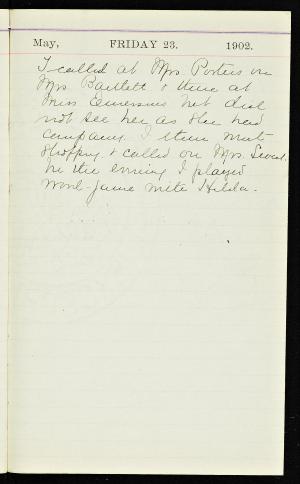 May, FRIDAY 23. 1902.
I called at Mrs Porters on
Mrs Bartlett & then at
Miss Emersons but did
not see her as she had
company. I then went
shopping & called on Mrs.
In the evening I played
Word-game with Hilda.